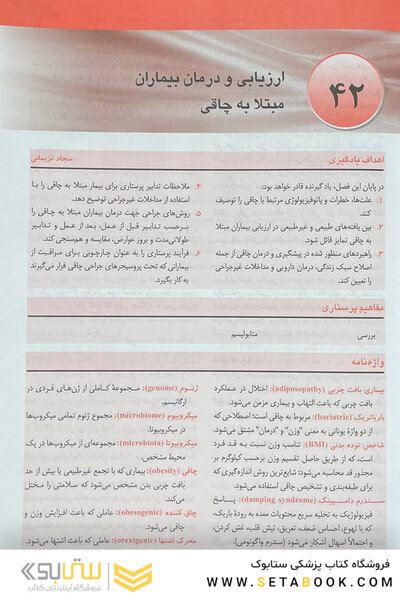 ۴۲
ارزیابی و درمان بیماران
مبتلا به چاقی
اهداف یادگیری
سجاد نریمانی
در پایان این فصل، یاد گیرنده قادر خواهد بود:
۱. علت‌ها، خطرات و پاتوفیزیولوژی مرتبط با چاقی را توصیف
کند.
۲. بین یافته‌های طبیعی و غیرطبیعی در ارزیابی بیماران مبتلا
به چاقی تمایز قائل شود.
۳. راهبردهای منظور شده در پیشگیری و درمان چاقی از جمله
اصلاح سبک زندگی، درمان دارویی و مداخلات غیرجراحی
را تعیین کند.
۴. ملاحظات تدابیر پرستاری برای بیمار مبتلا به چاقی را با
استفاده از مداخلات غیرجراحی توضیح دهد.
۵. روش‌های جراحی جهت درمان بیماران مبتلا به چاقی را
برحسب تدابیر قبل از عمل، بعد از عمل و تدابیر
طولانی‌مدت و بروز عوارض، مقایسه و هم‌سنجی کند.
۶. فرآیند پرستاری را به عنوان چارچوبی برای مراقبت از
بیمارانی که تحت پروسیجرهای جراحی چاقی قرار می‌گیرند
به کار بگیرد.
مفاهیم پرستاری
بررسی
متابولیسم
واژه‌نامه
بیماری بافت چربی (adiposopathy): اختلال در عملکرد
بافت چربی که باعث التهاب و بیماری مزمن می‌شود.
باریاتریک (bariatric): مربوط به چاقی است؛ اصطلاحی که
از دو واژهٔ یونانی به معنی "وزن" و "درمان" مشتق می‌شود.
شاخص توده بدنی (BMI): تناسب وزن نسبت به قد فرد
است، که از طریق حاصل تقسیم وزن برحسب کیلوگرم بر
مجذور قد محاسبه می‌شود؛ شایع‌ترین روش اندازه‌گیری که
برای طبقه‌بندی و تشخیص چاقی استفاده می‌شود.
سندرم دامپینگ (damping syndrome): پاسخ
فیزیولوژیک به تخلیه سریع محتویات معده به رودهٔ باریک،
که با تهوع، احساس ضعف، تعریق، تپش قلب، غش کردن،
و احتمالاً اسهال آشکار می‌شود (سندرم واگوتومی).
ژنوم (genome): مجموعهٔ کاملی از ژن‌های فردی در
ارگانیسم.
میکروبیوم (microbiome): مجموع ژنوم تمامی میکروب‌ها
در میکروبیوتا.
میکروبیوتا (microbiota): مجموعه‌ای از میکروب‌ها در یک
محیط مشخص.
چاقی (obesity): بیماری که با تجمع غیرطبیعی یا بیش از حد
بافت چربی بدن مشخص می‌شود که سلامتی را مختل
می‌کند.
چاق کننده (obesogenic): عاملی که باعث افزایش وزن و
چاقی می‌شود.
محرک اشتها (orexigenic): عاملی که باعث اشتها می‌شود.
فروشگاه کتاب پزشکی ستابوک
WWW.SETABOOK.COM
ستابوک
فروشگاه اینترنتی کتاب